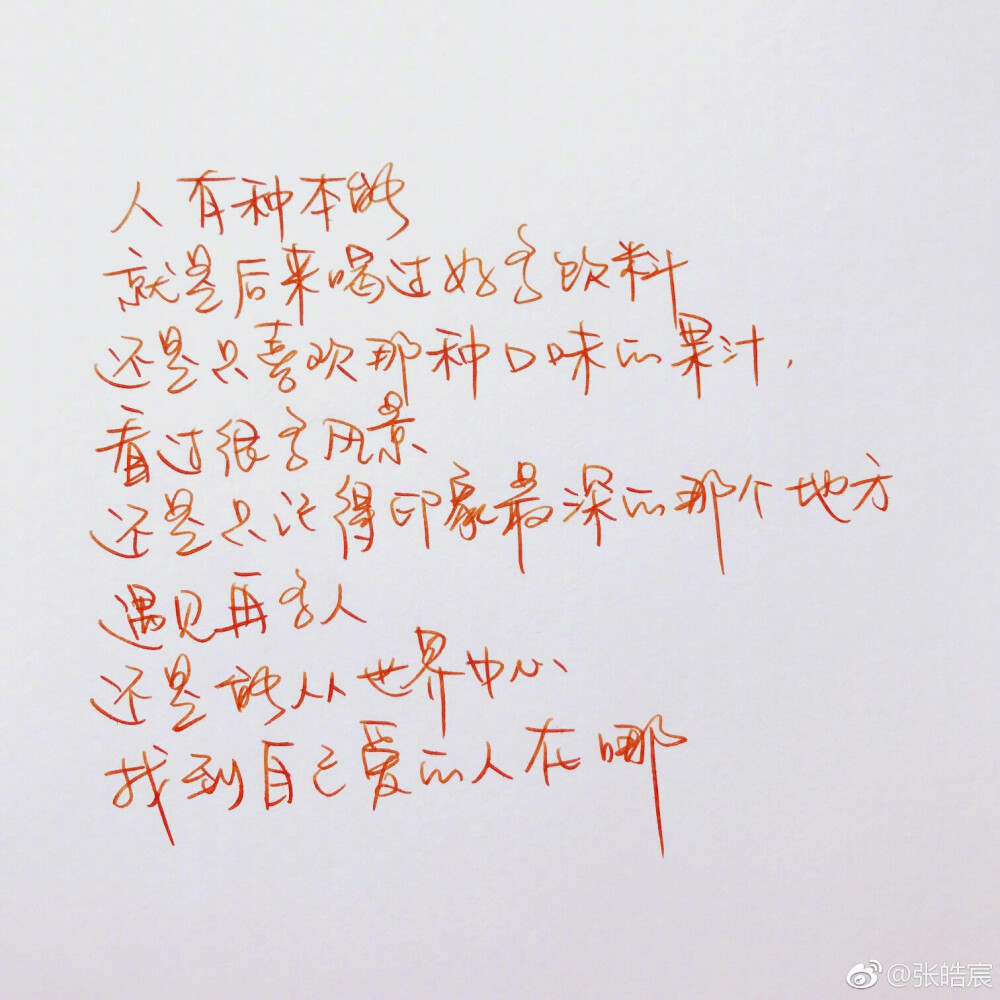 人有种本能
就是后来喝过好多饮料
还是只喜欢那种口味的果汁，
看过很多风景
还是只记得印象最深的那个地方
遇见再多人
还是能从世界中心
找到自己爱的人在哪
@张皓宸